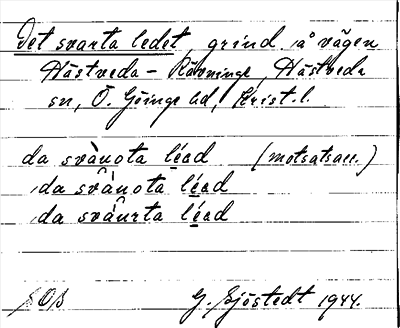 Det svarta ledet, grind å vägen
Hästveda - Rävninge, Hästveda
sn, Ö. Göinge hd, Krist. l.
da svànota léad (motsatsacc.)
da svànota léad
da svánrta léad
G. Sjöstedt 1944.